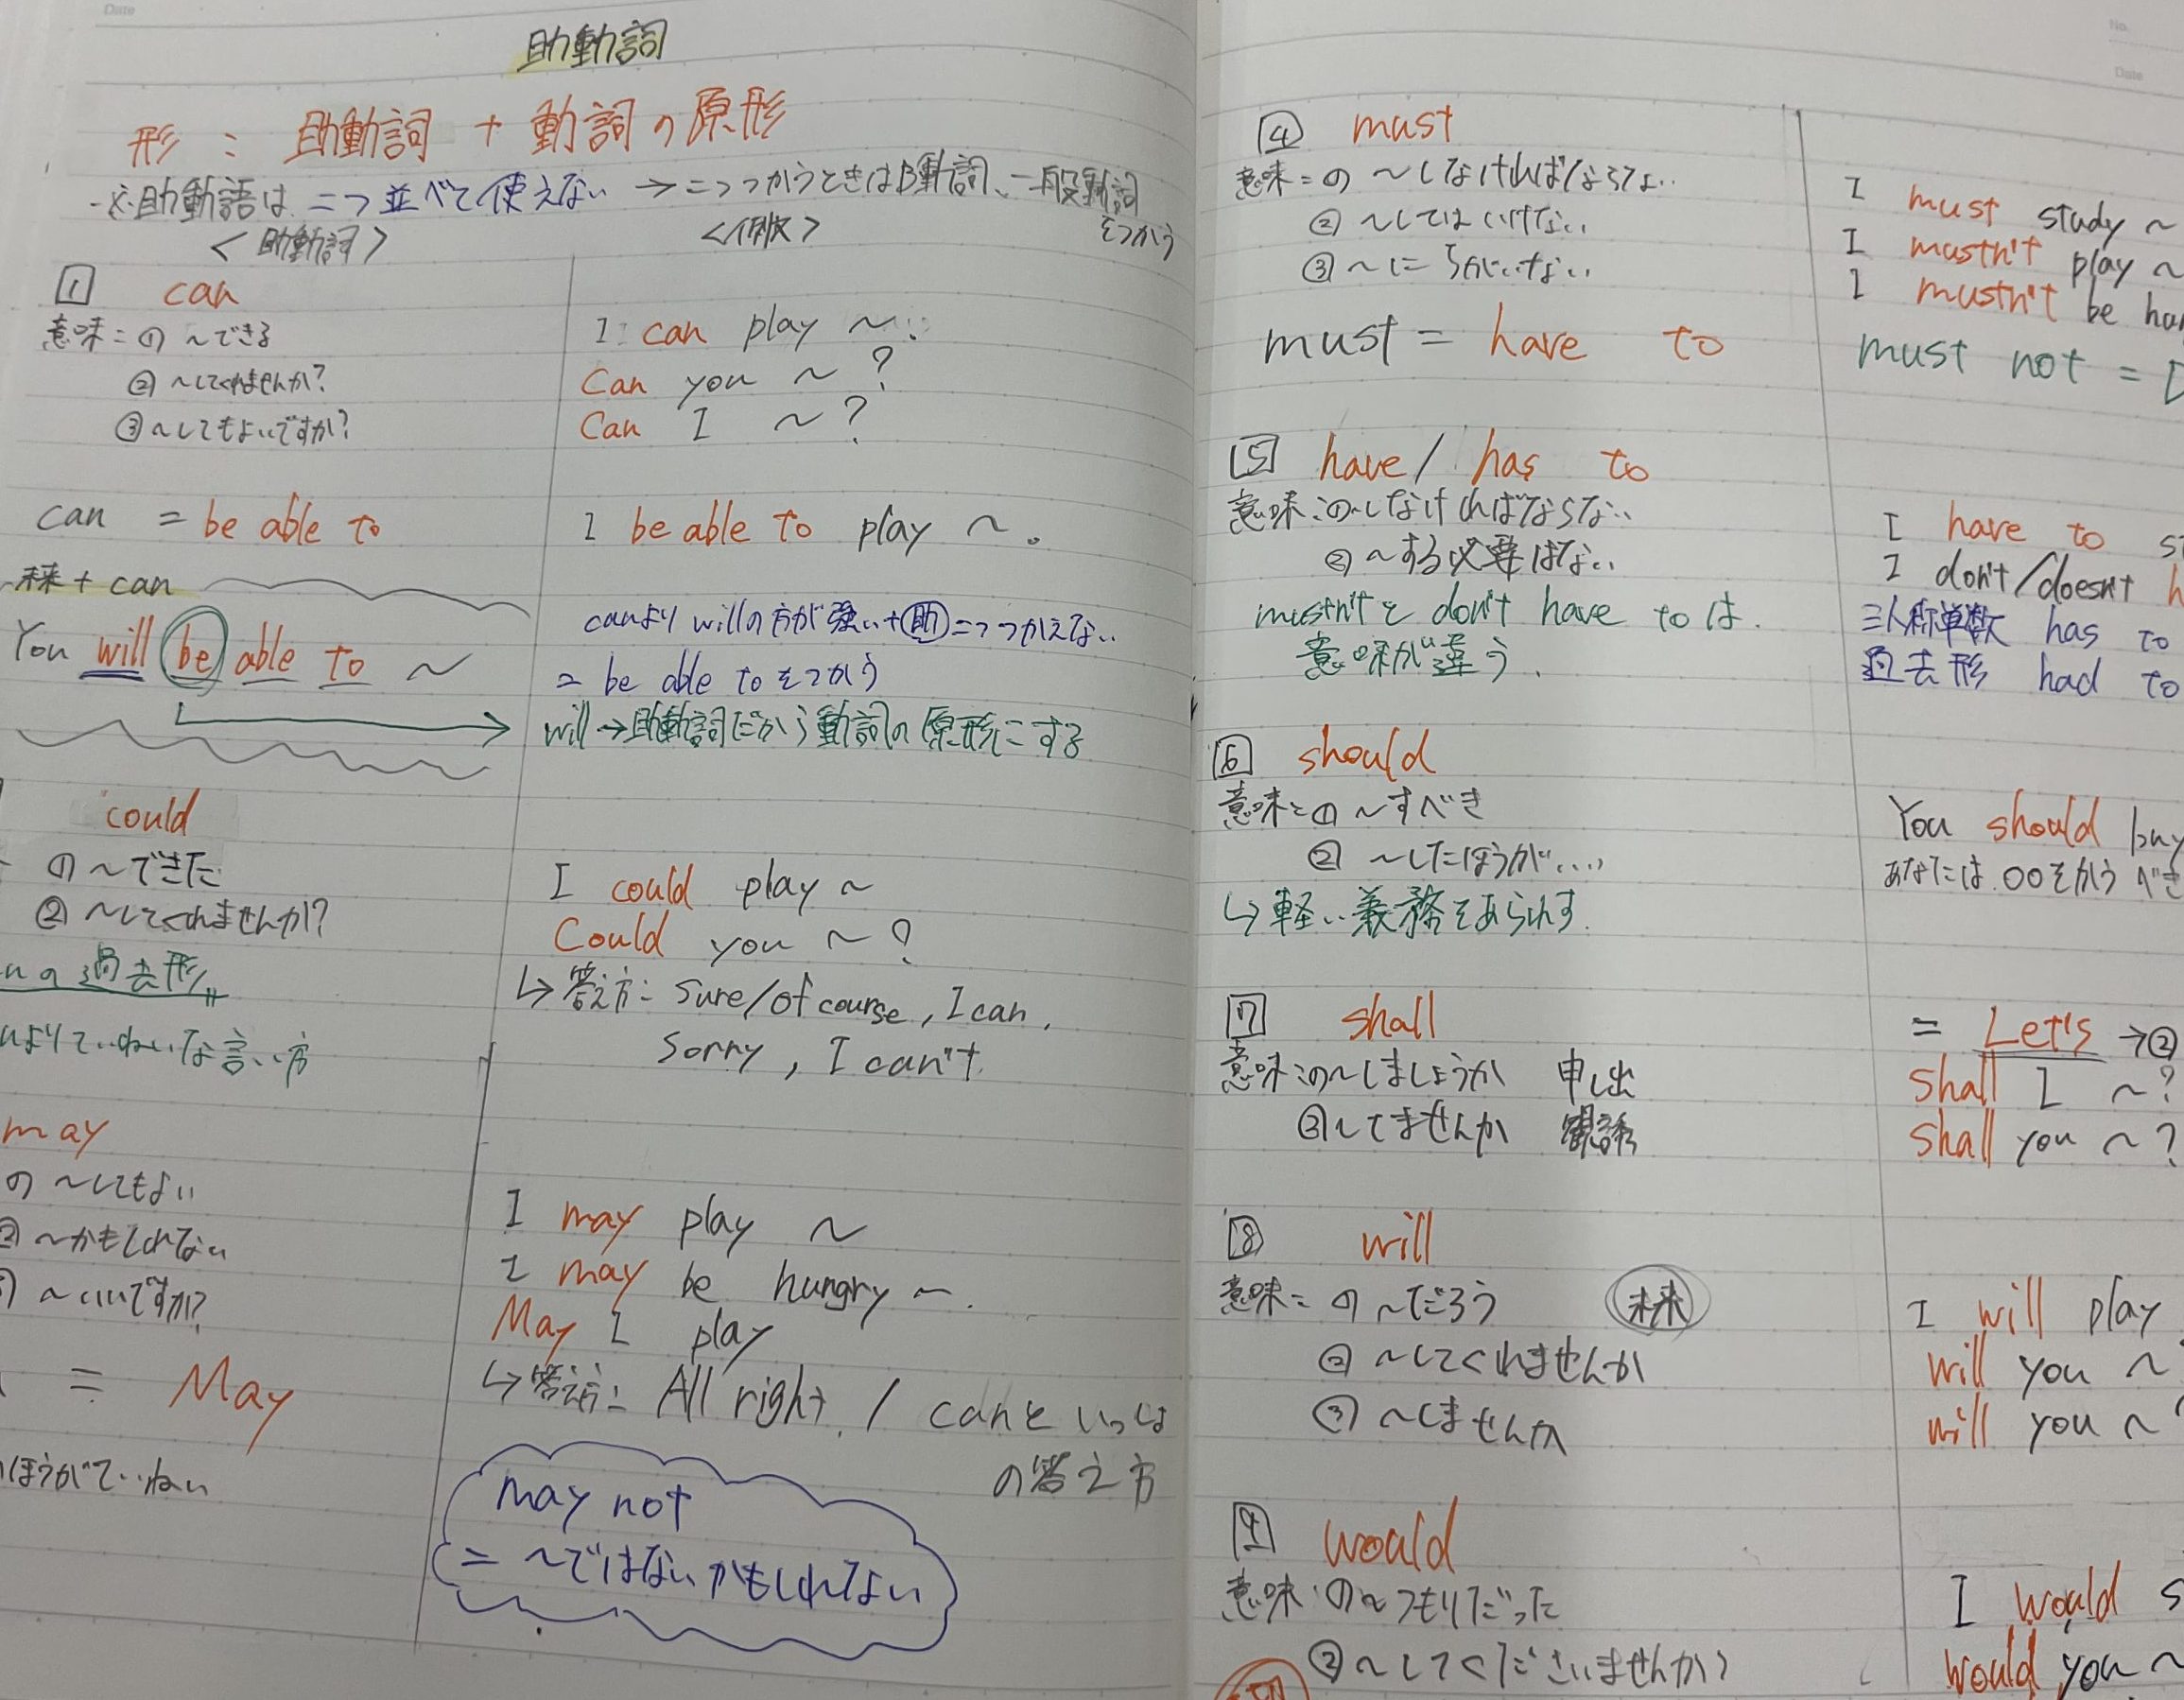 Date
助動詞
形：助動詞 + 動詞の原形
※助動語は二つ並べて使えない → 二つつかうときはB動詞、一般動詞
をつかう
<助動詞>
1 can
意味：① ～できる
② ～してくれませんか？
③ ～してもよいですか？
I can play ～.
Can you ～?
Can I ～?
can = be able to
I be able to play ～.
未来 + can
You will be able to ～
canより willの方が強い+助二つつかえない
= be able to をつかう
will→助動詞だから動詞の原形にする
could
① ～できた
② ～してくれませんか？
nの過去形
よりていねいな言い方
I could play ～
Could you ～?
↳答え方: Sure/of course, I can.
Sorry, I can't.
may
① ～してもよい
② ～かもしれない
～いいですか？
= May
ほうがていねい
I may play ～
I may be hungry ～.
May I play
↳答え方: All right. / canといっしょ
の答え方
may not
= ～ではないかもしれない
No.
Date
4 must
意味：① ～しなければならない
② ～してはいけない
③ ～にちがいない
must = have to
I must study ～
I mustn't play ～
I mustn't be
must not =
5 have/has to
意味：①～しなければならない
② ～する必要はない
mustn'tと don't have toは.
意味が違う.
I have to
I don't/doesn't
三人称単数 has to
過去形 had to
6 should
意味：① ～すべき
② ～したほうが...
↳軽い義務をあらわす.
You should buy
あなたは○○をかうべき
7 shall
意味：①～しましょうか 申し出
②～てませんか
= Let's →②
Shall I ～?
Shall you ～?
8 will
意味：① ～だろう 未来
② ～してくれませんか
③ ～しませんか
I will play
will you ～
will you ～
9 would
意味：①～つもりだった
②～してくださいませんか？
I would
would you ～